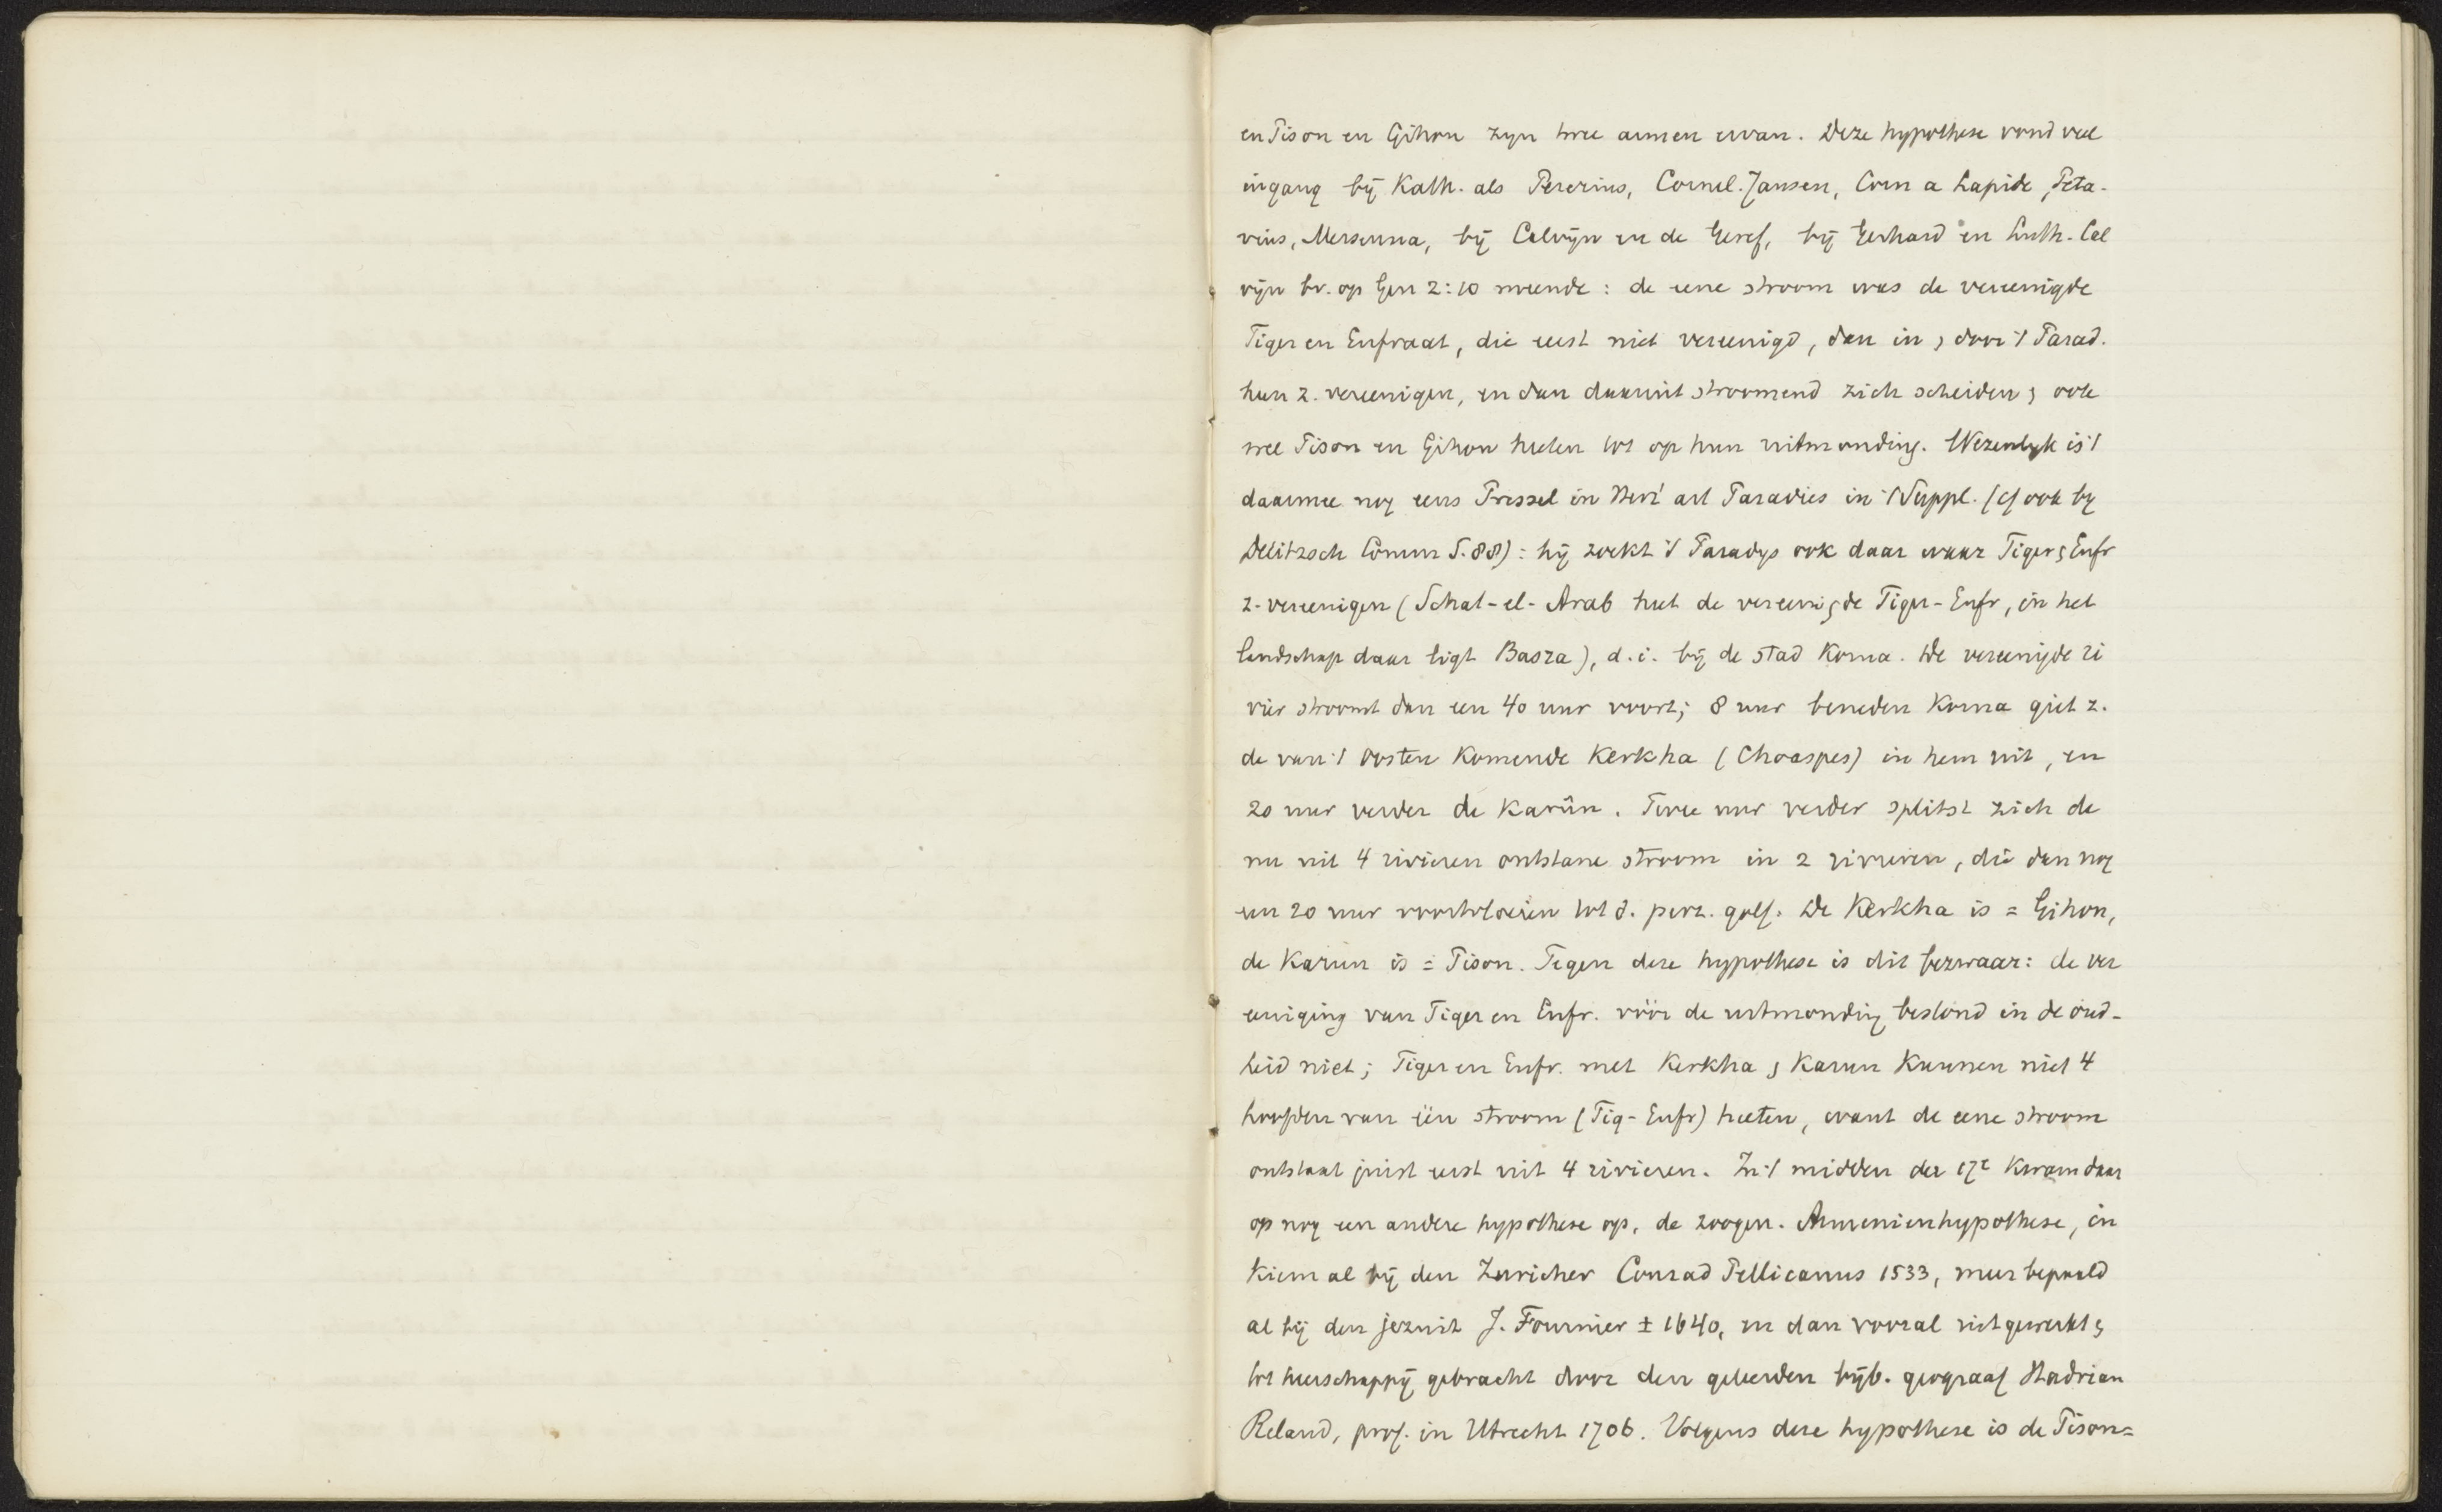 en Pison en Gihon zijn twee armen ervan. Deze hypothese vond veel
ingang bij Kath. als Pererius, Cornel. Jansen, Corn a Lapide, Peta-
vius, Mersenna, bij Calvijn en de Geref, bij Gerhard en Luth. Cal
vijn bv. op Gen 2:10 meende: de eene stroom was de vereenigde
Tiger en Eufraat, die eerst niet vereenigd, dan in & door 't Parad.
hun z. vereenigen, en dan daaruit stroomend zich scheiden & ook
wel Pison en Gihon heeten tot op hun uitmonding. Wezenlijk is 't
daarmee nog eens Pressel in art Paradies in 't Suppl. (cf ook bij
Delitzsch Comm S. 88): hij zoekt 't Paradijs ook daar waar Tiger & Eufr
z. vereenigen (Schat-el-Arab heet de vereenigde Tiger-Eufr, in het
landschap daar ligt Basza), d.i. bij de stad Korna. De vereenigde ri
vier stroomt dan een 40 uur voort; 8 uur beneden Korna giet z.
de van 't Oosten komende Kerkha (Choaspes) in hem uit, en
20 uur verder de Karûn. Twee uur verder splitst zich de
nu uit 4 rivieren ontstane stroom in 2 rivieren, die dan nog
een 20 uur voortvloeien tot d. perz. golf. De Kerkha is = Gihon,
de Karun is = Pison. Tegen deze hypothese is dit bezwaar: de ver
eeniging van Tiger en Eufr. vóór de uitmonding bestond in de oud-
heid niet; Tiger en Eufr. met Kerkha & Karun kunnen niet 4
hoofden van één stroom (Tig-Eufr) heeten, want de eene stroom
ontstaat juist eerst uit 4 rivieren. In 't midden der 17e kwam daar
op nog een andere hypothese op, de zoogen. Armenienhypothese, in
kiem al bij den Zuricher Conrad Pellicanus 1533, meer bepaald
al bij den jezuit J. Fournier ± 1640, en dan vooral uitgewerkt &
tot heerschappij gebracht door den geleerden bijb. geograaf Hadrian
Reland, prof. in Utrecht 1706. Volgens deze hypothese is de Pison=